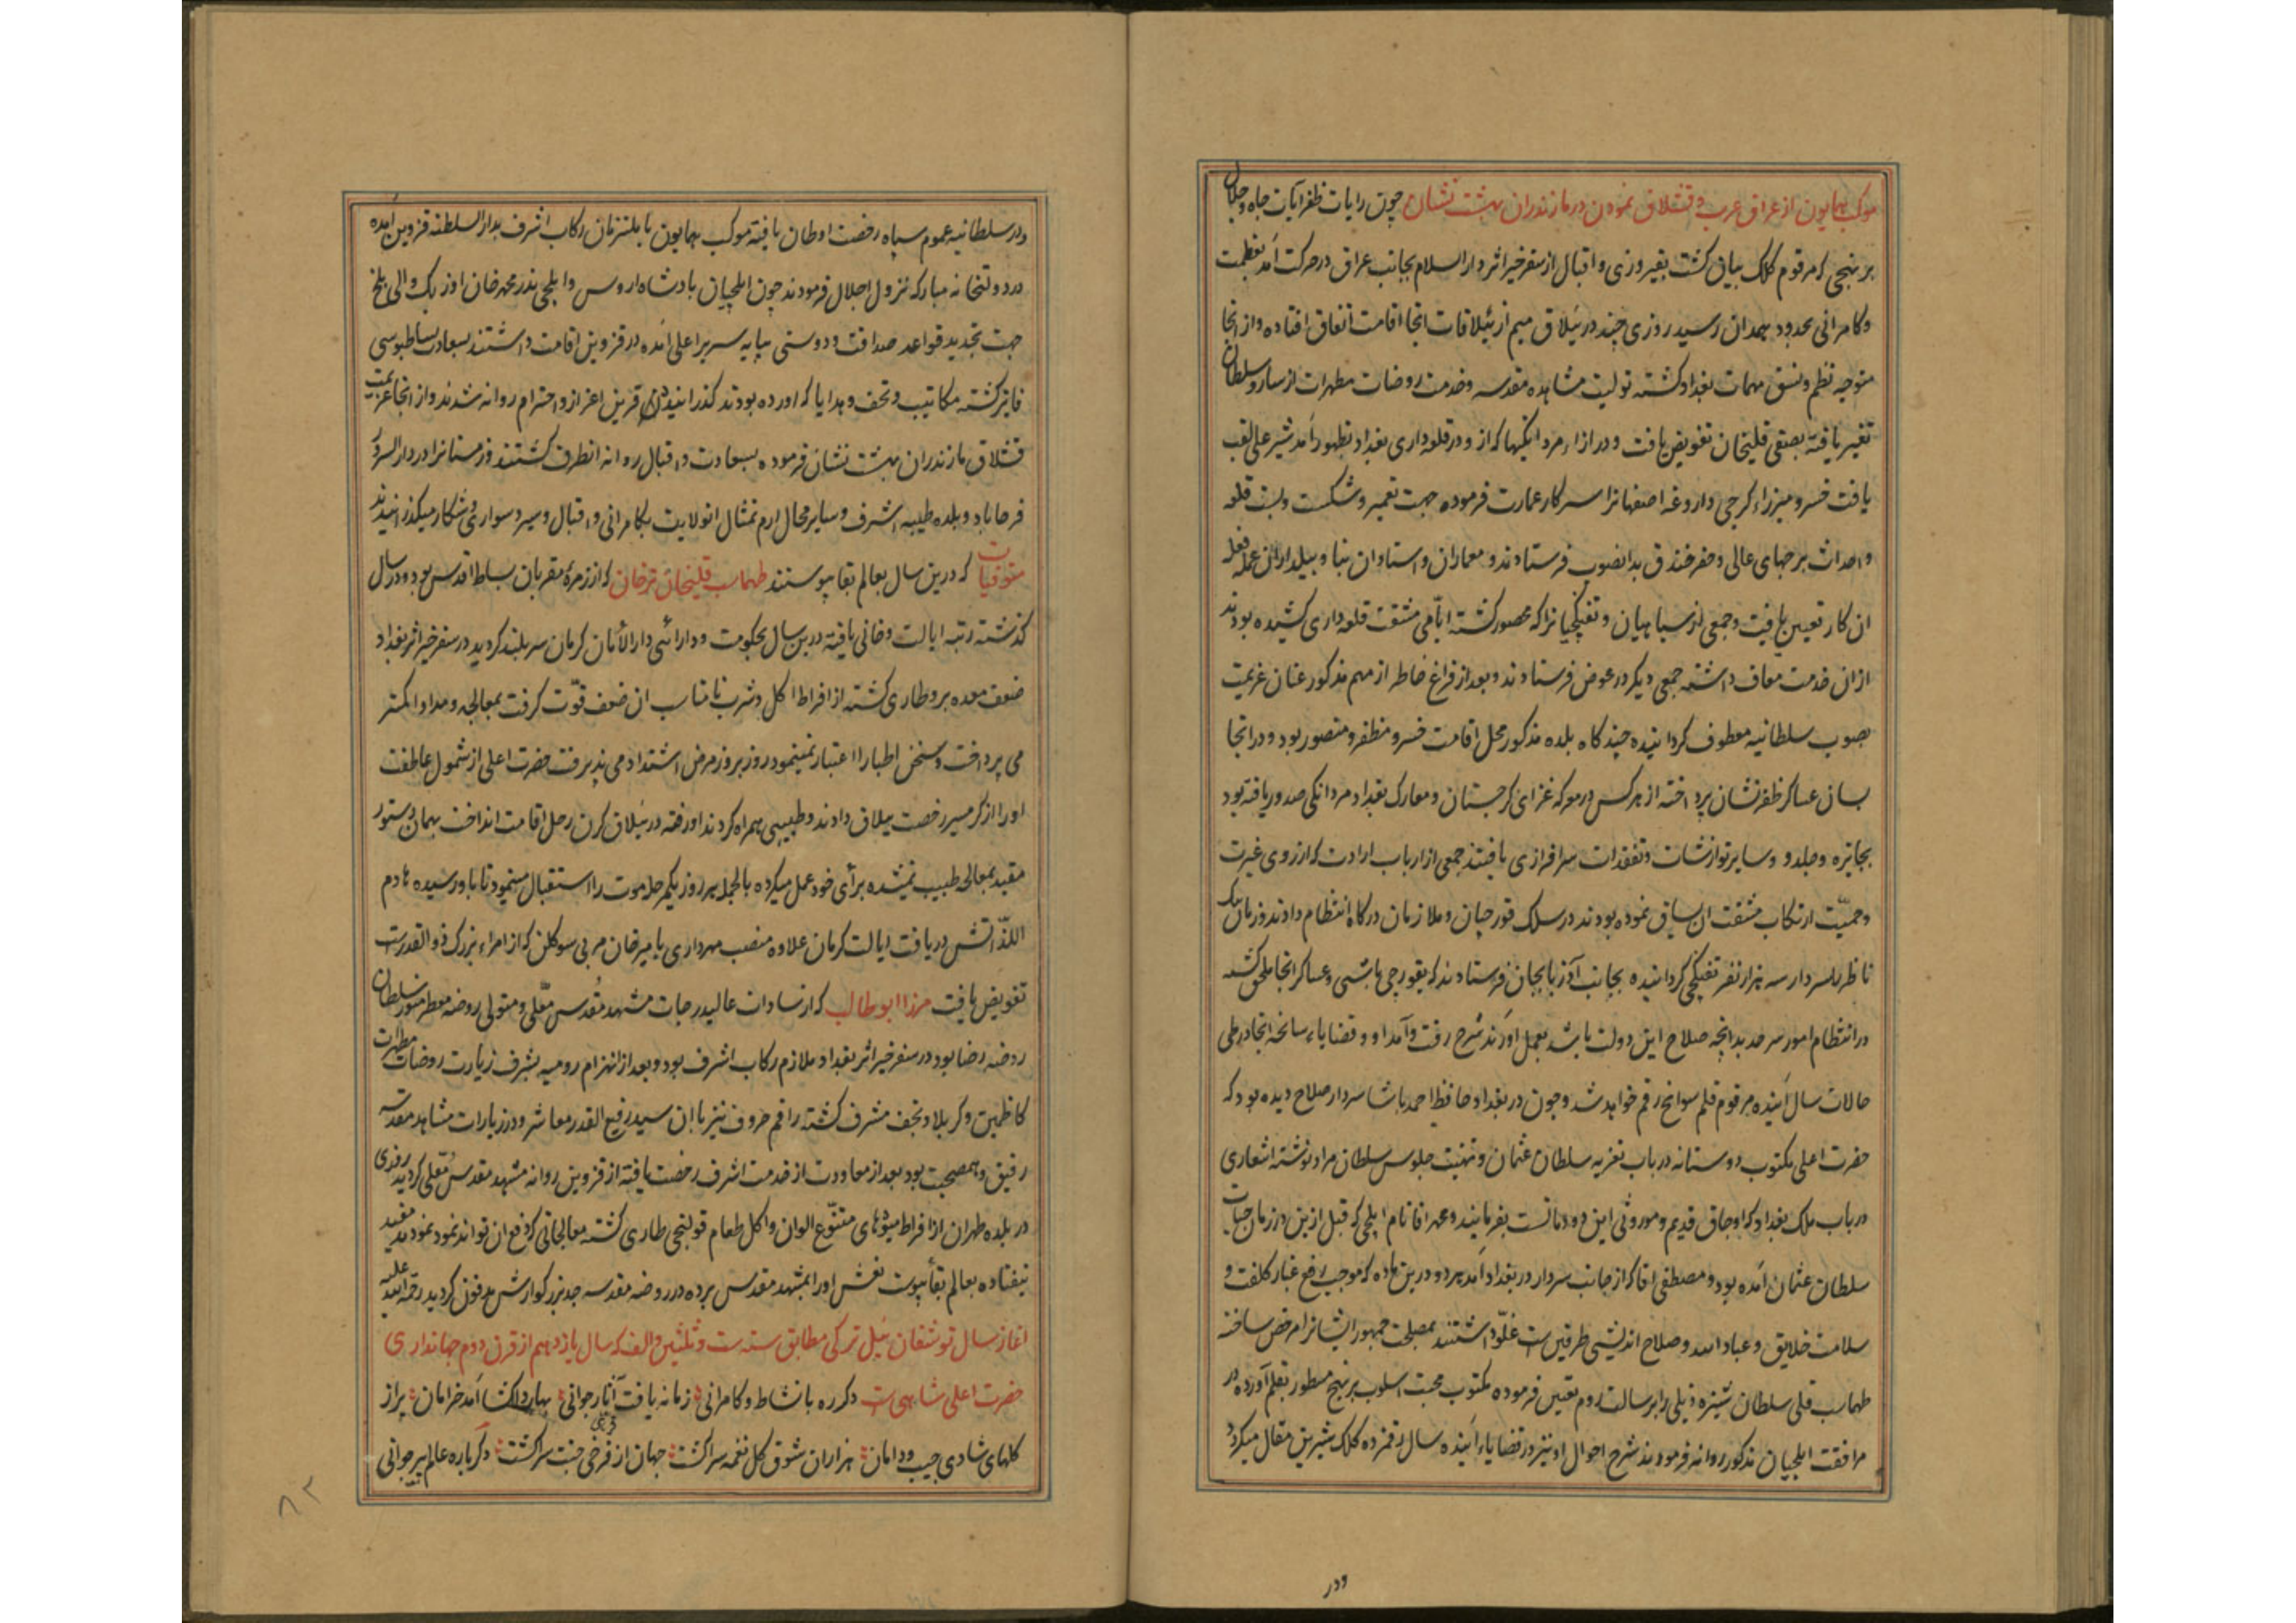 موکب همایون از عراق عرب و قشلاق نمودن در مازندران بهشت نشان چون رایات ظفر آیات جاه و جلال
بر نهجی که مرقوم کلک بیان کشت بفیروزی و اقبال از سفر خیر اثر دار السلام بجانب عراق در حرکت آمد بعظمت
و کامرانی بحدود همدان رسید روزی چند در ییلاق میم از ئیلاقات انجا اقامت اتفاق افتاده و از انجا
متوجه نظم و نسق مهمات بغداد کشته تولیت مشاهده مقدسه و خدمت روضات مطهرات از سارو سلطان
تغییر یافته بصفی قلیخان تفویض یافت و در ازاء مردانکیها که از و در قلعه داری بغداد بظهور آمد شیر علی لقب
یافت خسرو میرزاء کرجی داروغه اصفهانرا سرکار عمارت فرموده جهت تعمیر و شکست و بست قلعه
و احداث برجهای عالی و حفر خندق بدانصوب فرستادند و معماران و استادان بنا و بیلداران عمله فعله
ان کار تعیین یافت و جمعی از سپاهیان و تفنکچیانرا که محصور کشته ایّامی مشقت قلعه داری کشیده بودند
ازان خدمت معاف داشته جمعی دیکر در عوض فرستادند و بعد از فراغ خاطر از مهم مذکور عنان عزیمت
بصوب سلطانیه معطوف کردانیده چند کاه بلده مذکور محل اقامت خسرو مظفر و منصور بود و در انجا
بسان عساکر ظفر نشان پرداخته از هر کس در معرکه غزای کرجستان و معارک بغداد مردانکی صدور یافته بود
بجایزه و جلدو و سایر نوازشات و تفقدات سرافرازی یافتند جمعی از ارباب ارادت که از روی غیرت
و حمیّت ارتکاب مشقت ان یساق نموده بودند در سلک قورچیان و ملازمان درکاه انتظام دادند و زمان بیک
ناظر را سردار سه هزار نفر تفنکچی کردانیده بجانب آذربایجان فرستادند که بقورچی باشی و عساکر انجا ملحق کشته
در انتظام امور سرحد بدانچه صلاح این دولت باشد بعمل آورند شرح رفت و آمد او و قضایاء سانحه انجا در طی
حالات سال آینده مرقوم قلم سوانح رقم خواهد شد و چون در بغداد حافظ احمد پاشا سردار صلاح دیده بود که
حضرت اعلی مکتوب دوستانه در باب تعزیه سلطان عثمان و تهنیت جلوس سلطان مراد نوشته اشعاری
در باب ملک بغداد که اوجاق قدیم و موروثی این دودمانست بفرمایند و محمد اقا نام ایلچی که قبل ازین در زمان حیات
سلطان عثمان آمده بود و مصطفی اقا که از جانب سردار در بغداد آمد هر دو درین ماده که موجب رفع غبار کلفت و
سلامت خلایق و عباد الله و صلاح اندیشی طرفین است غلّو داشتند بمصلحت جمهور ایشانرا مرخص ساخته
طهماسب قلی سلطان را برسالت روم تعیین فرموده مکتوب محبت اسلوب بر نهج مسطور بقلم آورده در
مرافقت ایلچیان مذکور روانه فرمودند شرح احوال او نیز در قضایاء آینده سال رقمزده کلک شیرین مقال میکردد
ودر
و در سلطانیه عموم سپاه رخصت اوطان یافته موکب همایون با ملتزمان رکاب اشرف بدار السلطنه قزوین آمده
در دولتخانه مبارکه نزول اجلال فرمودند چون ایلچیان پادشاه اروس و ایلچی نذر محمد خان اوزبک والی بلخ
جهت تجدید قواعد صداقت و دوستی بپایه سریر اعلی آمده در قزوین اقامت داشتند بسعادت بساطبوسی
فایز کشته مکاتیب و تحف و هدایا که آورده بودند کذرانیدند قرین اعزاز و احترام روانه شدند و از انجا عزیمت
قشلاق مازندران بهشت نشان فرموده بسعادت و اقبال روانه انطرف کشتند و زمستانرا در دار السرور
فرحاباد و بلده طیبه اشرف و سایر محال ارم تمثال انولایت بکامرانی و اقبال و سیر و سواری و شکار میکذرانیدند
متوفیات که درین سال بعالم بقا پیوستند طهماسب قلیخان ترخان که از زمرهٔ مقربان بساط اقدس بود و در سال
کذشته رتبه ایالت و خانی یافته درین سال بحکومت و دارائی دار الأمان کرمان سربلند کردید در سفر خیر اثر بغداد
ضعف معده برو طاری کشته از افراط اکل و شرب نامناسب ان ضعف قوّت کرفت بمعالجه و مداوا کمتر
می پرداخت و سخن اطبا را اعتبار نمینمود روز بروز مرض اشتداد می پذیرفت حضرت اعلی از شمول عاطفت
او را از کرمسیر رخصت ییلاق دادند و طبیبی همراه کردند او رفته در ییلاق کرن رحل اقامت انداخت بهمان دستور
مقید بمعالجه طبیب نمیشده برأی خود عمل میکرده بالجمله هر روز یکمرحله موت را استقبال مینمود تا باو رسیده هادم
اللذّاتش دریافت ایالت کرمان علاوه منصب مهرداری بامیرخان سوکلن که از امراء بزرک ذوالقدرست
تفویض یافت مرزا ابوطالب که از سادات عالیدرجات مشهد مقدس معّلی و متولی روضه معطر منور سلطان
روضه رضا بود در سفر خیر اثر بغداد ملازم رکاب اشرف بود و بعد از انهزام رومیه بشرف زیارت روضات مطهرات
کاظمین و کربلا و نجف مشرف کشته راقم حروف نیز با ان سید رفیع القدر معاشر و در زیارات مشاهد مقدسه
رفیق و همصحبت بود بعد از معاودت از خدمت اشرف رخصت یافته از قزوین روانه مشهد مقدس معّلی کردید روزی
در بلده طهران از افراط میوهای متنوّع الوان و اکل طعام قولنجی طاری کشته معالجاتی که دفع ان تواند نمود نمودند مفید
نیفتاده بعالم بقا پیوست نعش او را بمشهد مقدس برده در روضه مقدسه جد بزرکوارش مدفون کردید رحمة الله علیه
آغاز سال توشقان ئیل ترکی مطابق سنه ست و ثلثین و الف که سال یازدهم از قرن دوم جهانداری
حضرت اعلی شاهی ست دکر ره با نشاط و کامرانی زمانه یافت آثار جوانی بهار دلکشا آمد خرامان پر از
کلهای شادی جیب و دامان هزاران شوق کل نغمه سرا کشت جهان از فرخی جنت سرا کشت دکرباره عالم پیر جوانی
۸۲